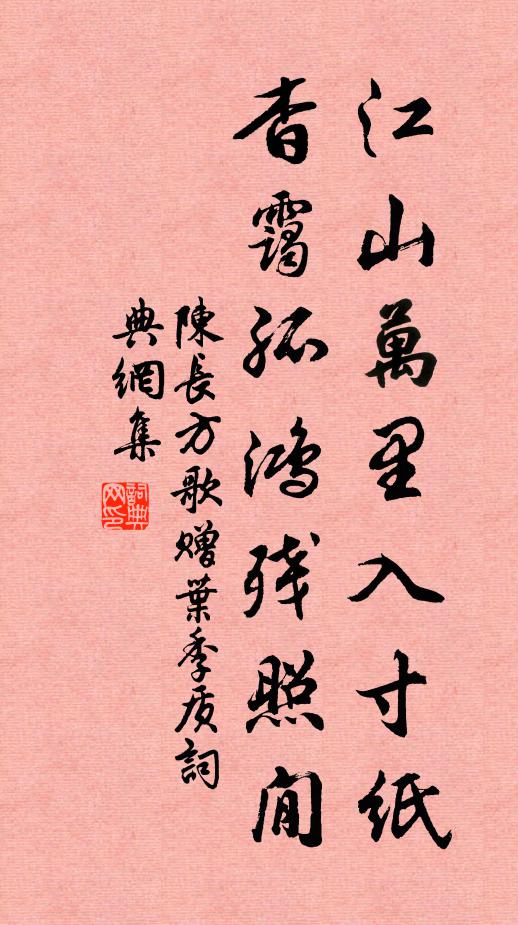 江山萬里入寸紙
杳靄孤鴻残照間
陳長方歌贈葉季质詞
典網集
詞典
网印